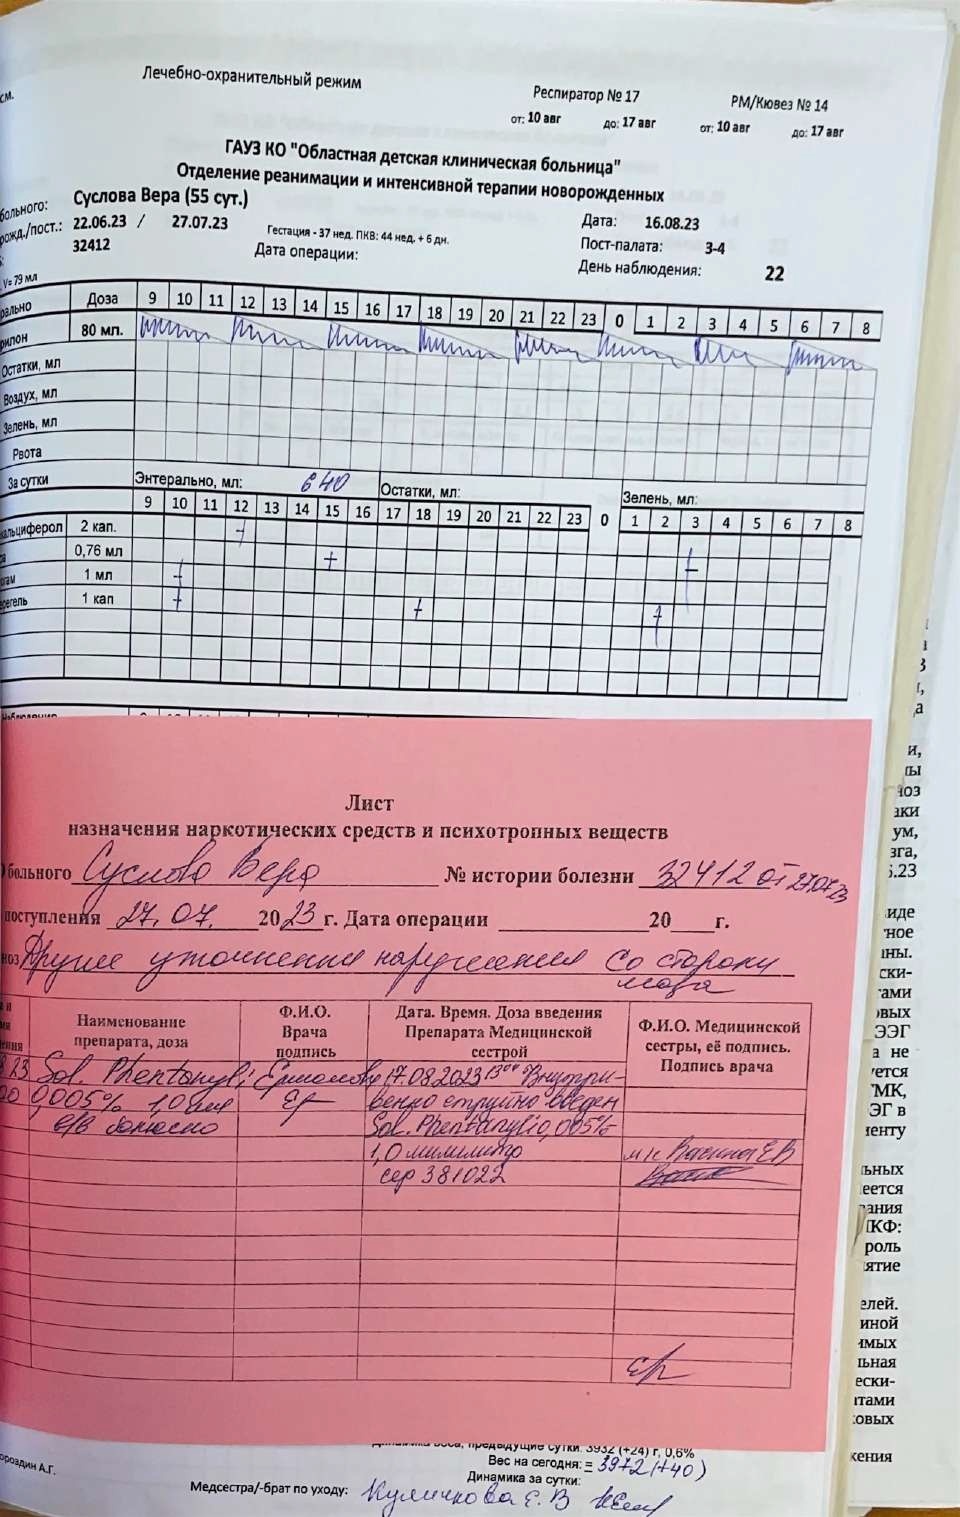 см.
Лечебно-охранительный режим
Респиратор № 17
РМ/Кювез № 14
от: 10 авг до: 17 авг от: 10 авг до: 17 авг
ГАУЗ КО "Областная детская клиническая больница"
Отделение реанимации и интенсивной терапии новорожденных
больного: Суслова Вера (55 сут.) Дата: 16.08.23
рожд./пост.: 22.06.23 / 27.07.23 Гестация - 37 нед. ПКВ: 44 нед. + 6 дн. Пост-палата: 3-4
32412 Дата операции: День наблюдения: 22
V= 79 мл
рально Доза 9 10 11 12 13 14 15 16 17 18 19 20 21 22 23 0 1 2 3 4 5 6 7 8
рилон 80 мл.
Остатки, мл
Воздух, мл
Зелень, мл
Рвота
За сутки Энтерально, мл: 640 Остатки, мл: Зелень, мл:
9 10 11 12 13 14 15 16 17 18 19 20 21 22 23 0 1 2 3 4 5 6 7 8
кальциферол 2 кап.
ра 0,76 мл
1 мл
регель 1 кап
Наблюдение
Лист
назначения наркотических средств и психотропных веществ
больного Суслова Вера № истории болезни 32412 от 27.07.23
поступления 27.07. 2023 г. Дата операции 20 г.
ноз Другие уточнения нарушения со стороны
мозга
Наименование препарата, доза
Ф.И.О. Врача подпись
Дата. Время. Доза введения Препарата Медицинской сестрой
Ф.И.О. Медицинской сестры, её подпись. Подпись врача
8.23 Sol. Phentanyli Ермолова 17.08.2023 13ºº Внутри-
00 0,005% 1,0 мл Ер венно струйно введен
в/в болюсно Sol. Phentanylio,005%
1,0 миллилитр м/с Васина ЕВ
сер 381022
Ер
Динамика веса, предыдущие сутки: 3932 (+24) г, 0,6%
Вес на сегодня: = 3972 (+40)
ороздин А.Г.
Динамика за сутки:
Медсестра/-брат по уходу: Куличкова Е. В
и,
ноз
аки
ум,
зга,
6.23
виде
тное
ины.
ски-
гами
овых
ЭЭГ
а не
уется
ГМК,
ЭГ в
иенту
льных
меется
вания
МКФ:
роль
иятие
елей.
иной
имых
льная
ески-
атами
ковых
жения